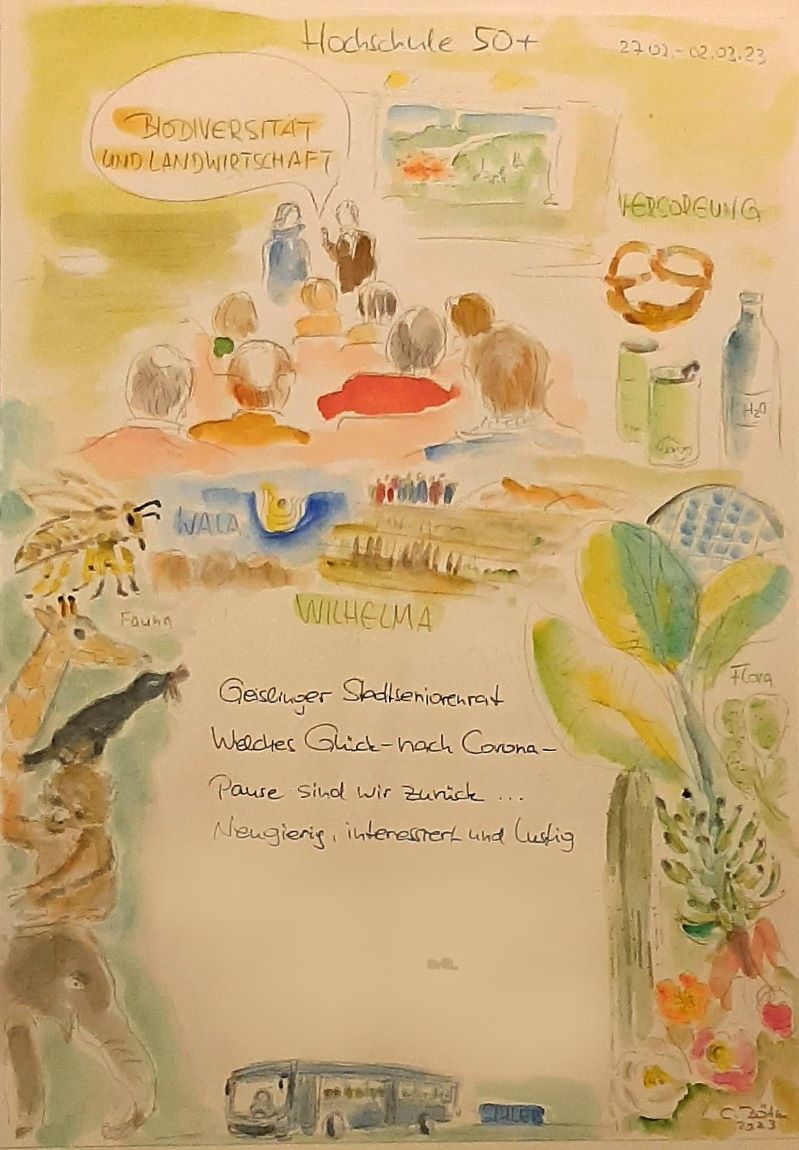 Hochschule 50+
27.02.-02.03.23
BIODIVERSITÄT
UND LANDWIRTSCHAFT
VERSORGUNG
H2O
WALA
Fauna
WILHELMA
Flora
Geislinger Stadtseniorenrat
Welches Glück-nach Corona-
Pause sind wir zurück ...
Neugierig, interessiert und lustig
2023